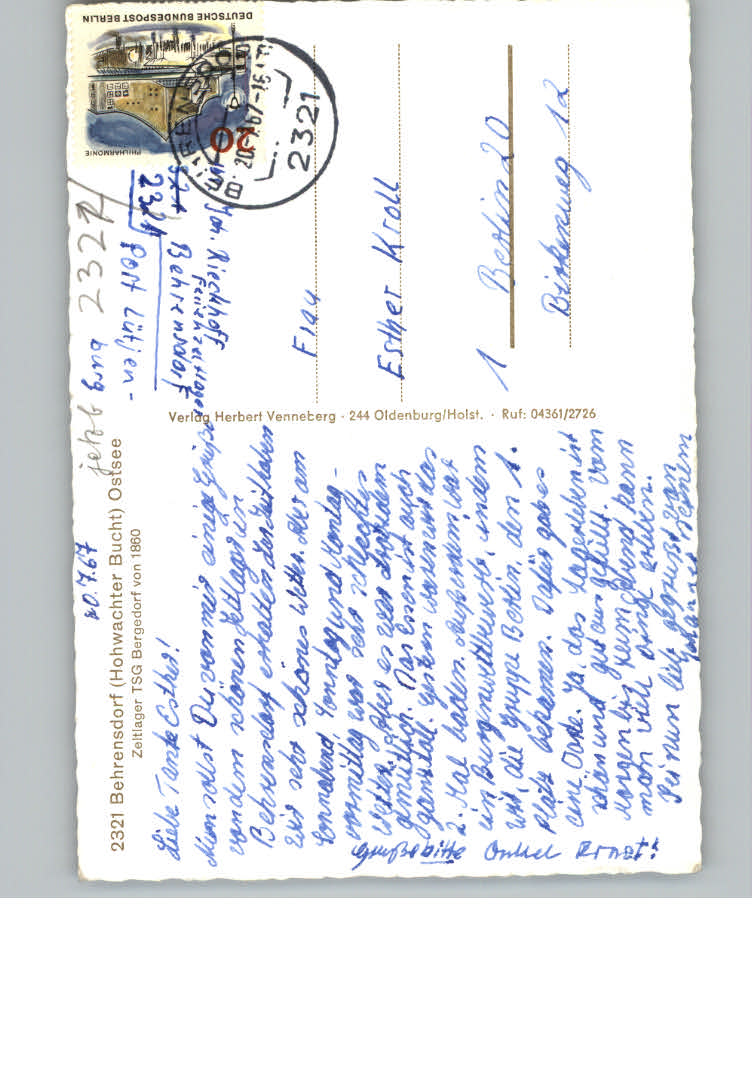 2321 Behrensdorf (Hohwachter Bucht) Ostsee
Zeltlager TSG Bergedorf von 1860
20.7.67
Liebe Tante Esther!
Nun sollst Du von mir einige Grüße
von dem schönen Zeltlager in
Behrensdorf erhalten. Der Zeit haben
wir sehr schönes Wetter. Aber am
Sonnabend Sonntag und Montag-
vormittag war sehr schlechtes
Wetter, aber es war trotzdem
gemütlich. Das Essen ist auch
ganz toll. Gestern waren wir das
2. Mal baden. Außerdem war
ein Burgenwettbewerb, indem
wir, die Gruppe Berlin, den 1.
Platz bekamen. Dafür gab es
eine Torte. Ja, das Lagerleben ist
schön und gut ausgefüllt. Vom
Morgen bis zum Abend kann
man viele Dinge erleben.
Sei nun lieb gegrüßt von
Deinem
Grüße bitte Onkel Ernst!
Verlag Herbert Venneberg · 244 Oldenburg/Holst. · Ruf: 04361/2726
DEUTSCHE BUNDESPOST BERLIN
PHILHARMONIE
20
BEHRENSDORF
20.7.67-16
2321
Joh. Rieckhoff
Ferienzeltlager
2321 Behrensdorf
2321 Post Lütjen-
burg
jetzt 2321
Frau
Esther Kroll
1 Berlin 20
Birkenweg 12